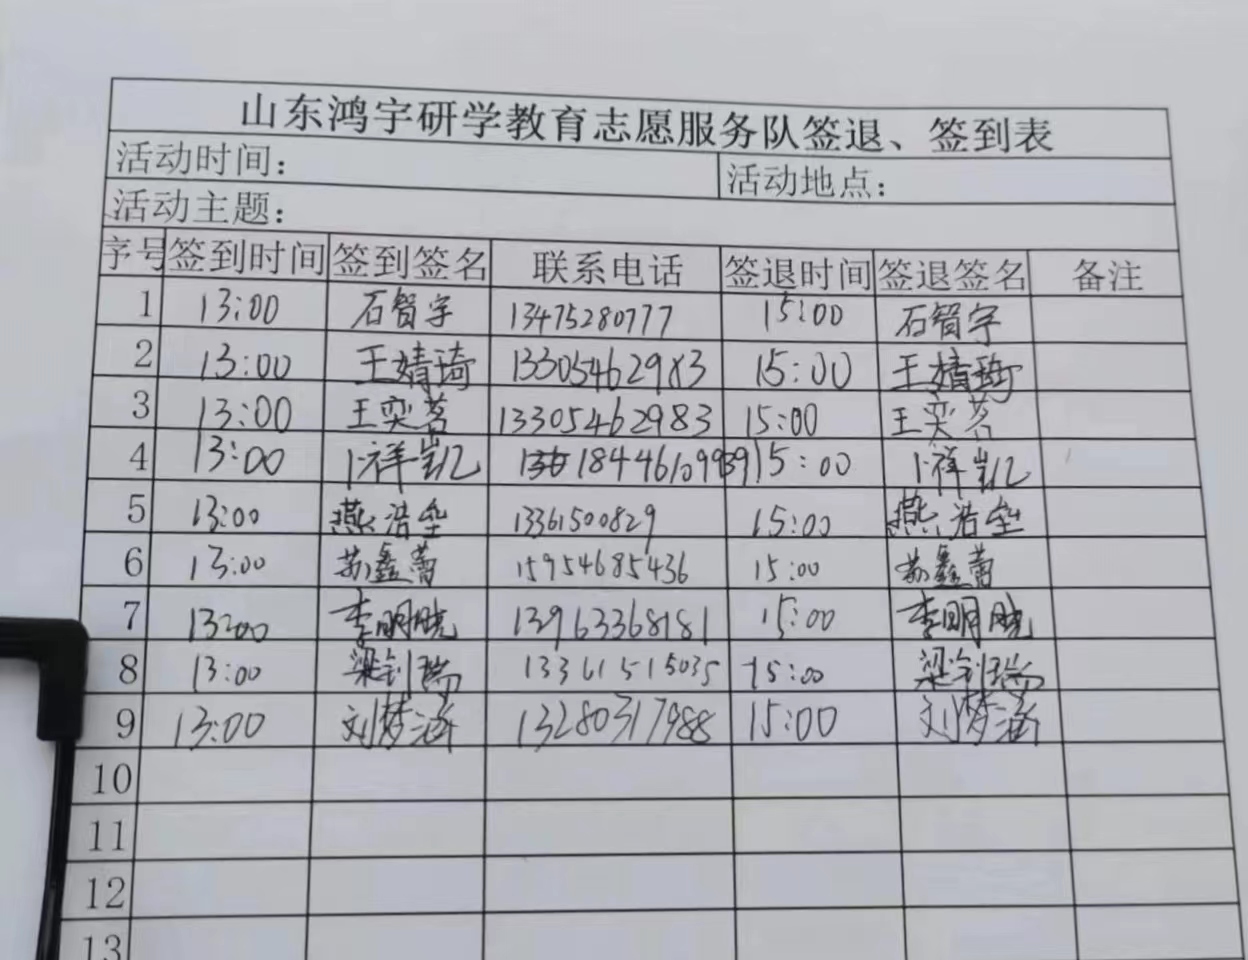 山东鸿宇研学教育志愿服务队签退、签到表
活动时间： 活动地点：
活动主题：
序号 签到时间 签到签名 联系电话 签退时间 签退签名 备注
1 13:00 石智宇 13475280777 15:00 石智宇
2 13:00 王婧琦 13305462983 15:00 王婧琦
3 13:00 王奕茗 13305462983 15:00 王奕茗
4 13:00 卜祥凯 15:00 卜祥凯
5 13:00 燕浩垒 13361500829 15:00 燕浩垒
6 13:00 苏鑫蕾 15954685436 15:00 苏鑫蕾
7 13:00 李明晓 13963368181 15:00 李明晓
8 13:00 梁钊瑞 13361515035 15:00 梁钊瑞
9 13:00 刘梦涵 13280317988 15:00 刘梦涵
10
11
12
13